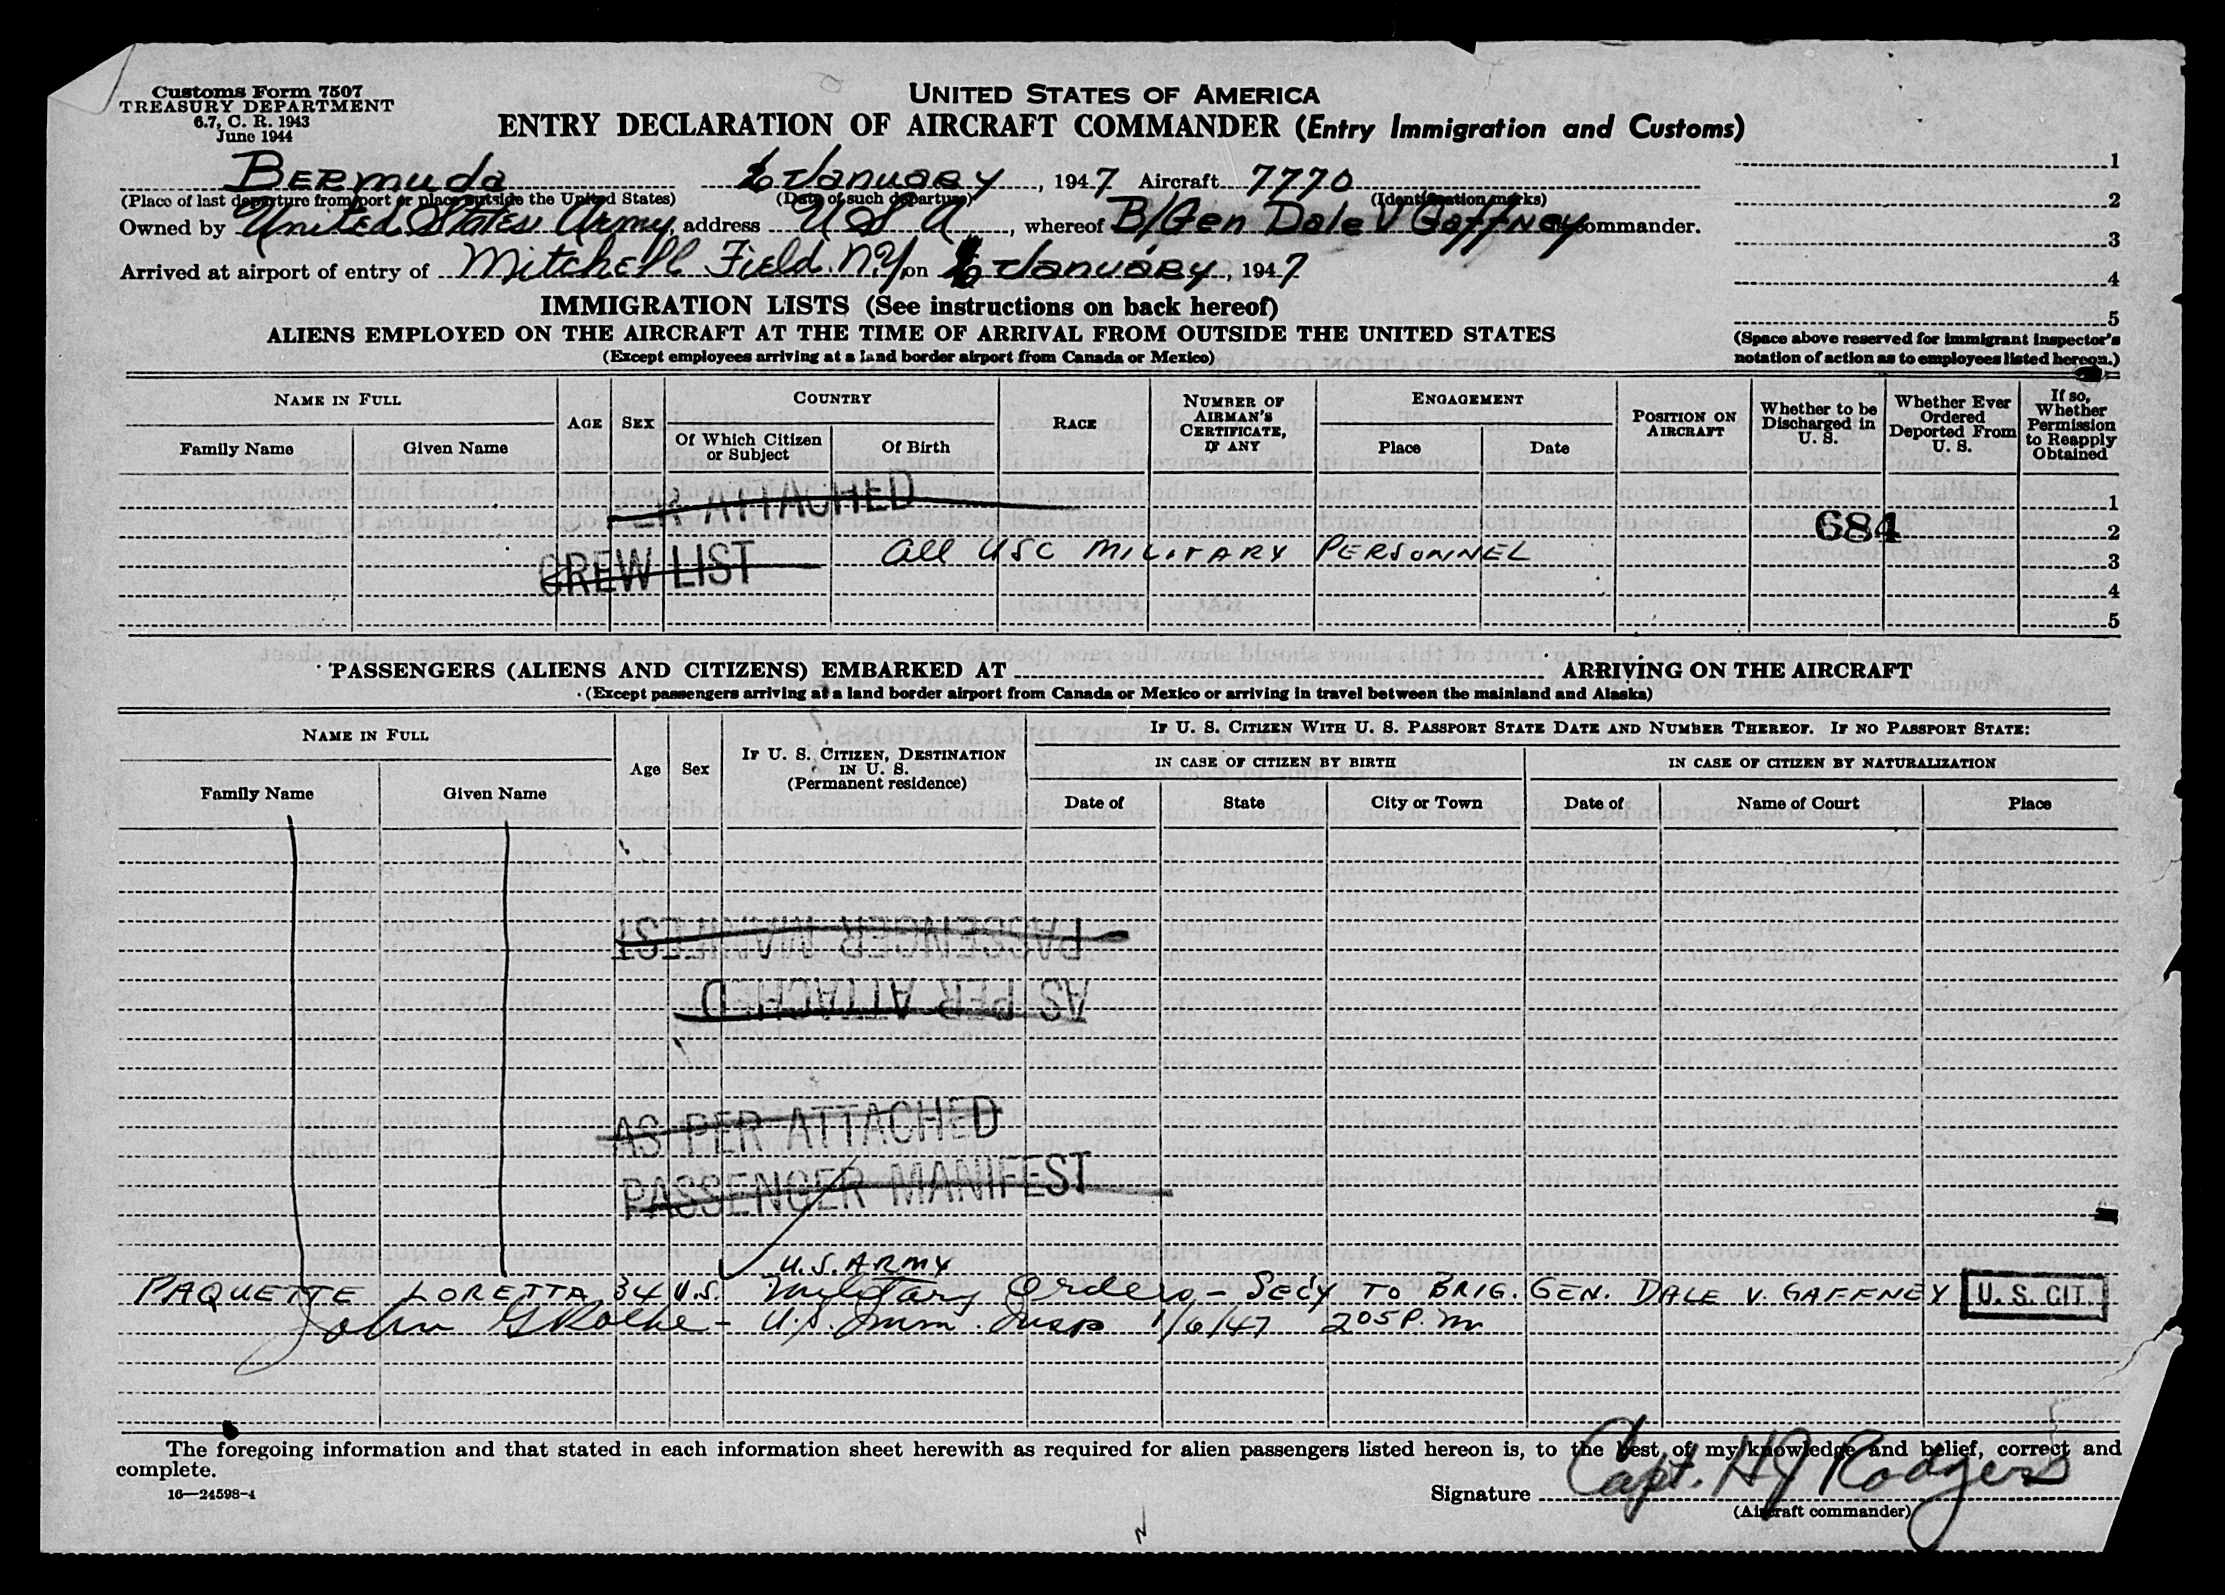 Customs Form 7507
TREASURY DEPARTMENT
6.7, C. R. 1943
June 1944
UNITED STATES OF AMERICA
ENTRY DECLARATION OF AIRCRAFT COMMANDER (Entry Immigration and Customs)
BERMUDA 6 January, 1947 Aircraft 7770
(Place of last departure from port or place outside the United States) (Date of such departure) (Identification marks)
Owned by United States Army, address U S A, whereof B/Gen Dale V Gaffney commander.
Arrived at airport of entry of Mitchell Field. N.Y. on 6 January, 1947
1
2
3
4
5
(Space above reserved for immigrant inspector's
notation of action as to employees listed hereon.)
IMMIGRATION LISTS (See instructions on back hereof)
ALIENS EMPLOYED ON THE AIRCRAFT AT THE TIME OF ARRIVAL FROM OUTSIDE THE UNITED STATES
(Except employees arriving at a land border airport from Canada or Mexico)
NAME IN FULL
Family Name Given Name
AGE
SEX
COUNTRY
Of Which Citizen
or Subject
Of Birth
RACE
NUMBER OF
AIRMAN'S
CERTIFICATE,
IF ANY
ENGAGEMENT
Place Date
POSITION ON
AIRCRAFT
Whether to be
Discharged in
U. S.
Whether Ever
Ordered
Deported From
U. S.
If so,
Whether
Permission
to Reapply
Obtained
R ATTACHED 1
684 2
CREW LIST All USC MILITARY PERSONNEL 3
4
5
PASSENGERS (ALIENS AND CITIZENS) EMBARKED AT ARRIVING ON THE AIRCRAFT
(Except passengers arriving at a land border airport from Canada or Mexico or arriving in travel between the mainland and Alaska)
NAME IN FULL
Family Name Given Name
Age
Sex
IF U. S. CITIZEN, DESTINATION
IN U. S.
(Permanent residence)
IF U. S. CITIZEN WITH U. S. PASSPORT STATE DATE AND NUMBER THEREOF. IF NO PASSPORT STATE:
IN CASE OF CITIZEN BY BIRTH IN CASE OF CITIZEN BY NATURALIZATION
Date of State City or Town Date of Name of Court Place
PASSENGER MANIFEST
AS PER ATTACHED
AS PER ATTACHED
PASSENGER MANIFEST
U.S. ARMY
PAQUETTE LORETTA 34 U.S. Military Orders - SEC'Y TO BRIG. GEN. DALE V. GAFFNEY U. S. CIT.
John - U.S. Imm. Insp 1/6/47 2 05 P. m
The foregoing information and that stated in each information sheet herewith as required for alien passengers listed hereon is, to the best of my knowledge and belief, correct and
complete.
16—24598-4
Signature Capt. H J Rodgers
(Aircraft commander)